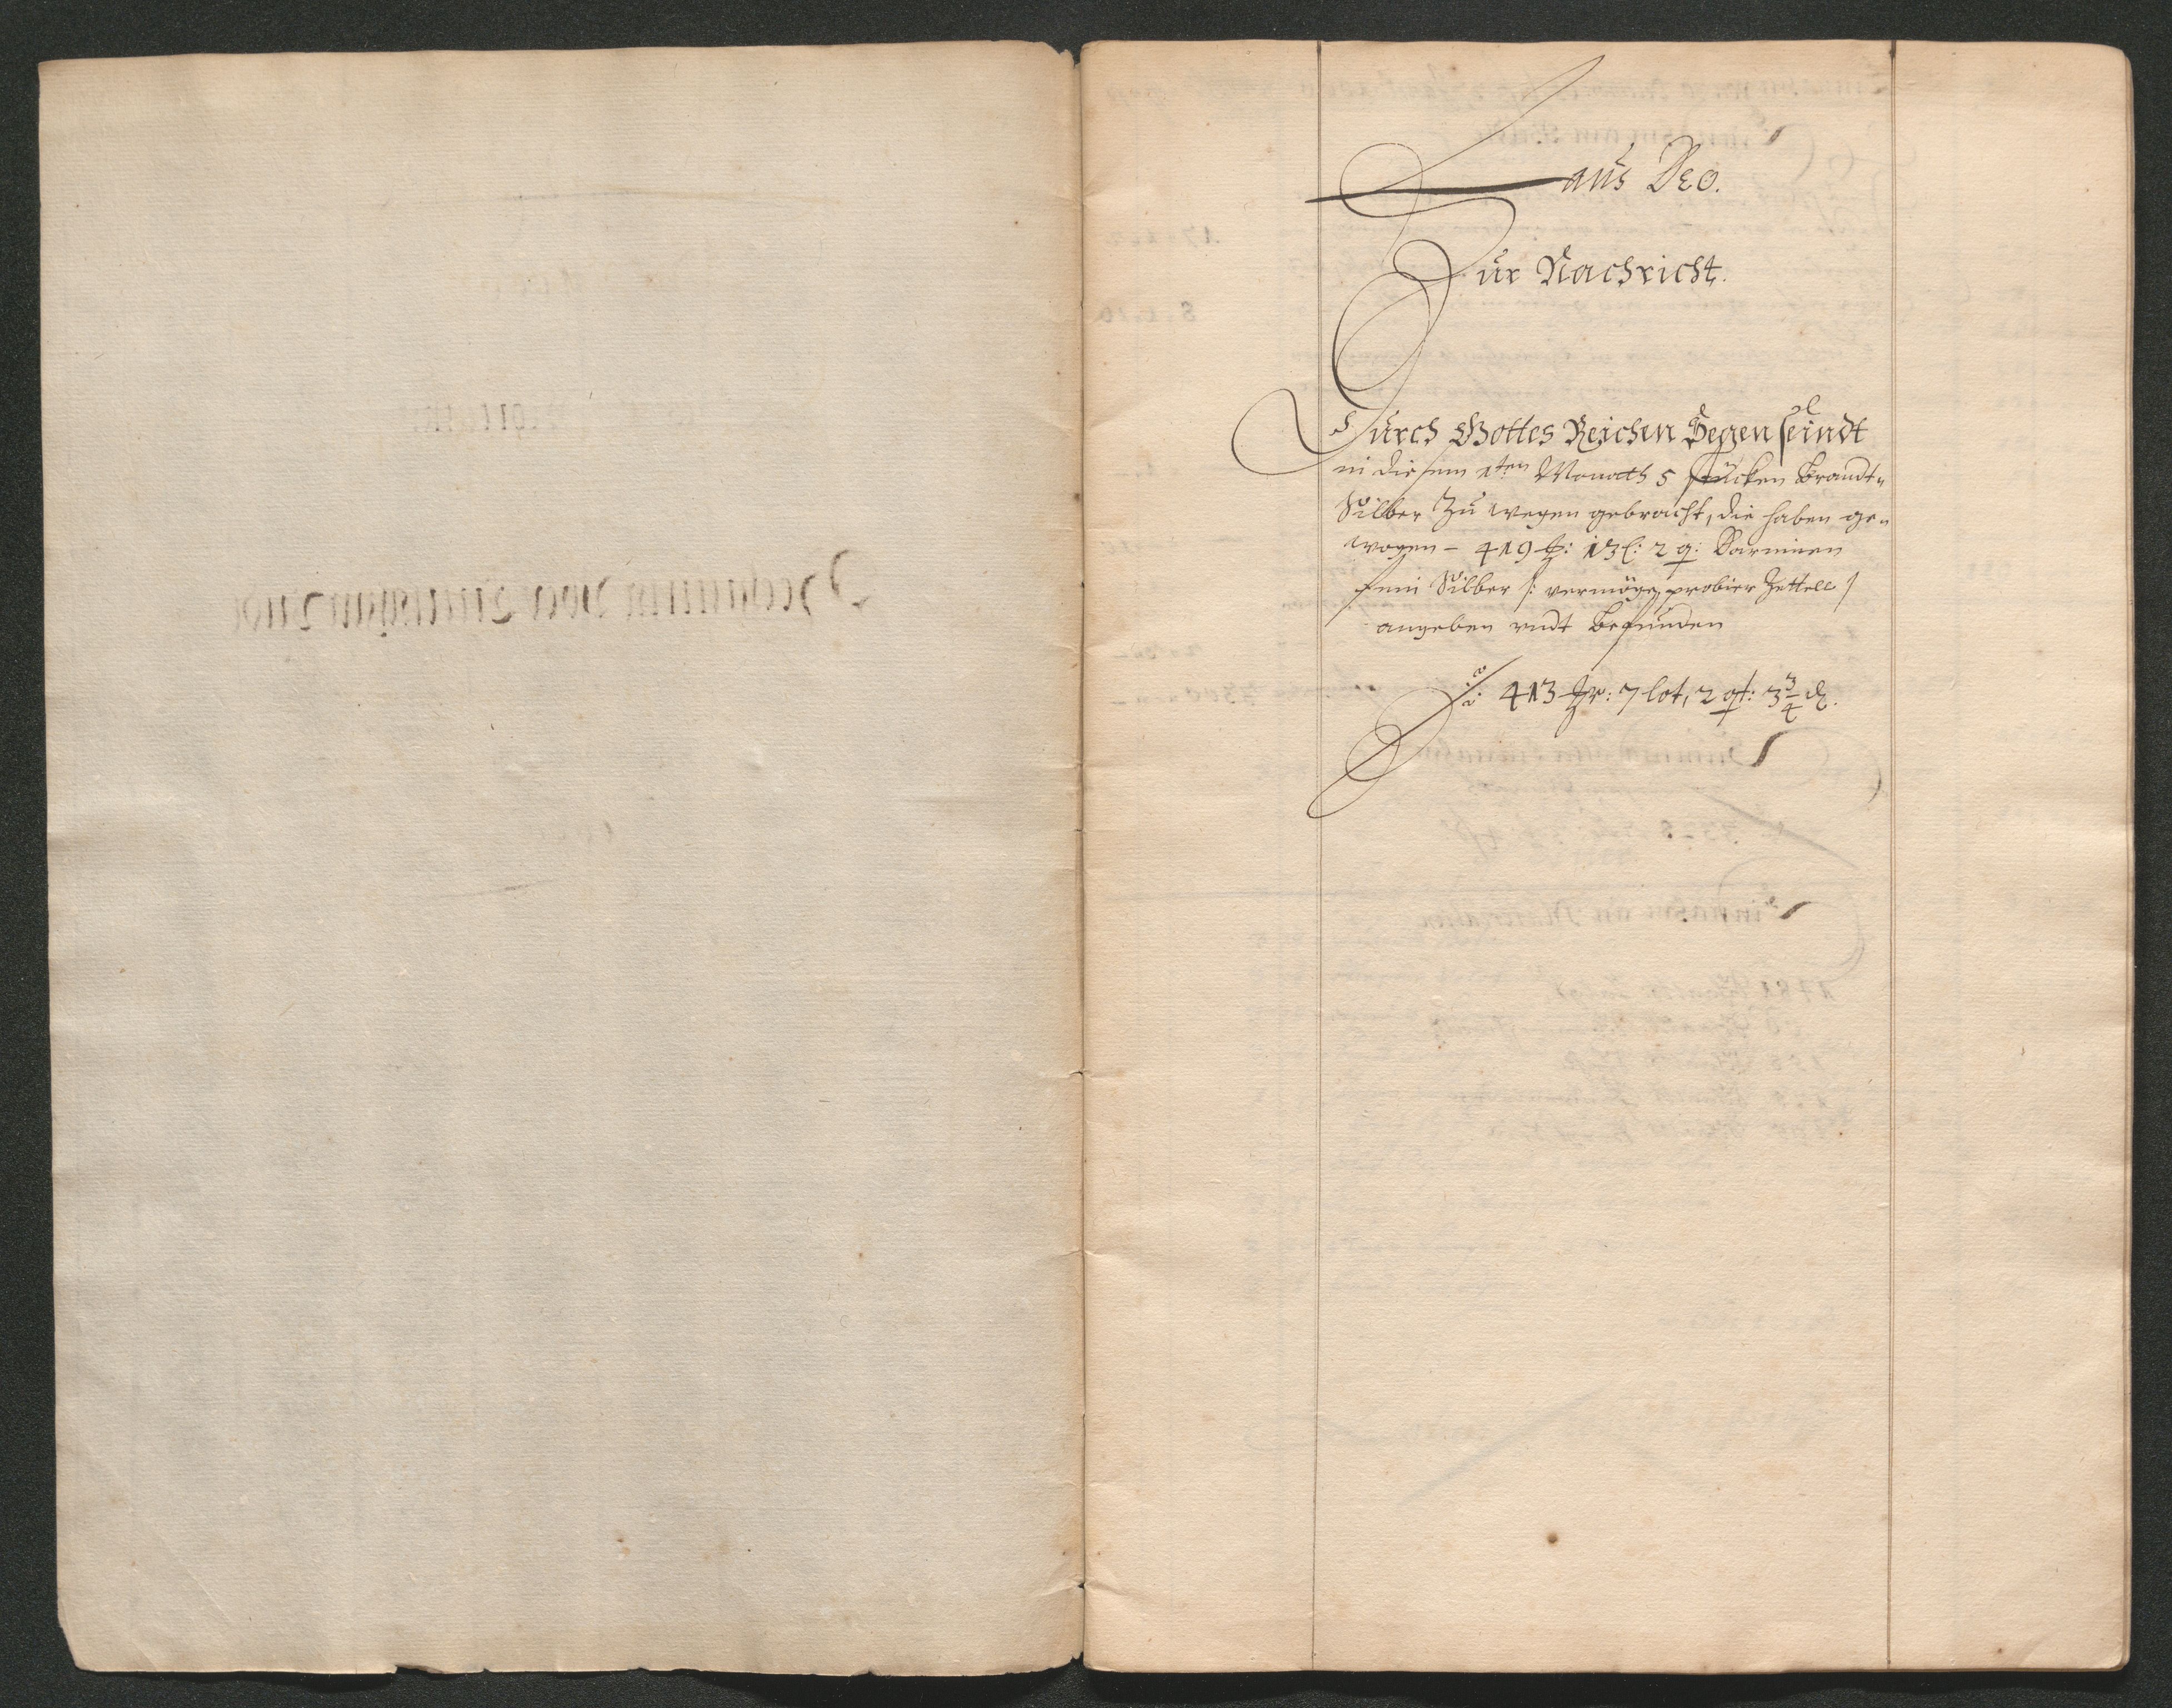 Laus Deo.
Zur Nachricht.
Durch Gottes Reichen Segen seindt
in diesem 1ten Monath 5 stücken Brandt-
Silber Zu wegen gebracht, die haben ge-
wogen – 419 ℔: 13 l: 2 q: Darinnen
fein Silber /: vermöge probier Zettell /
angeben undt befunden
413 ℔: 7 lot, 2 qt: 3 3/4 ₰.